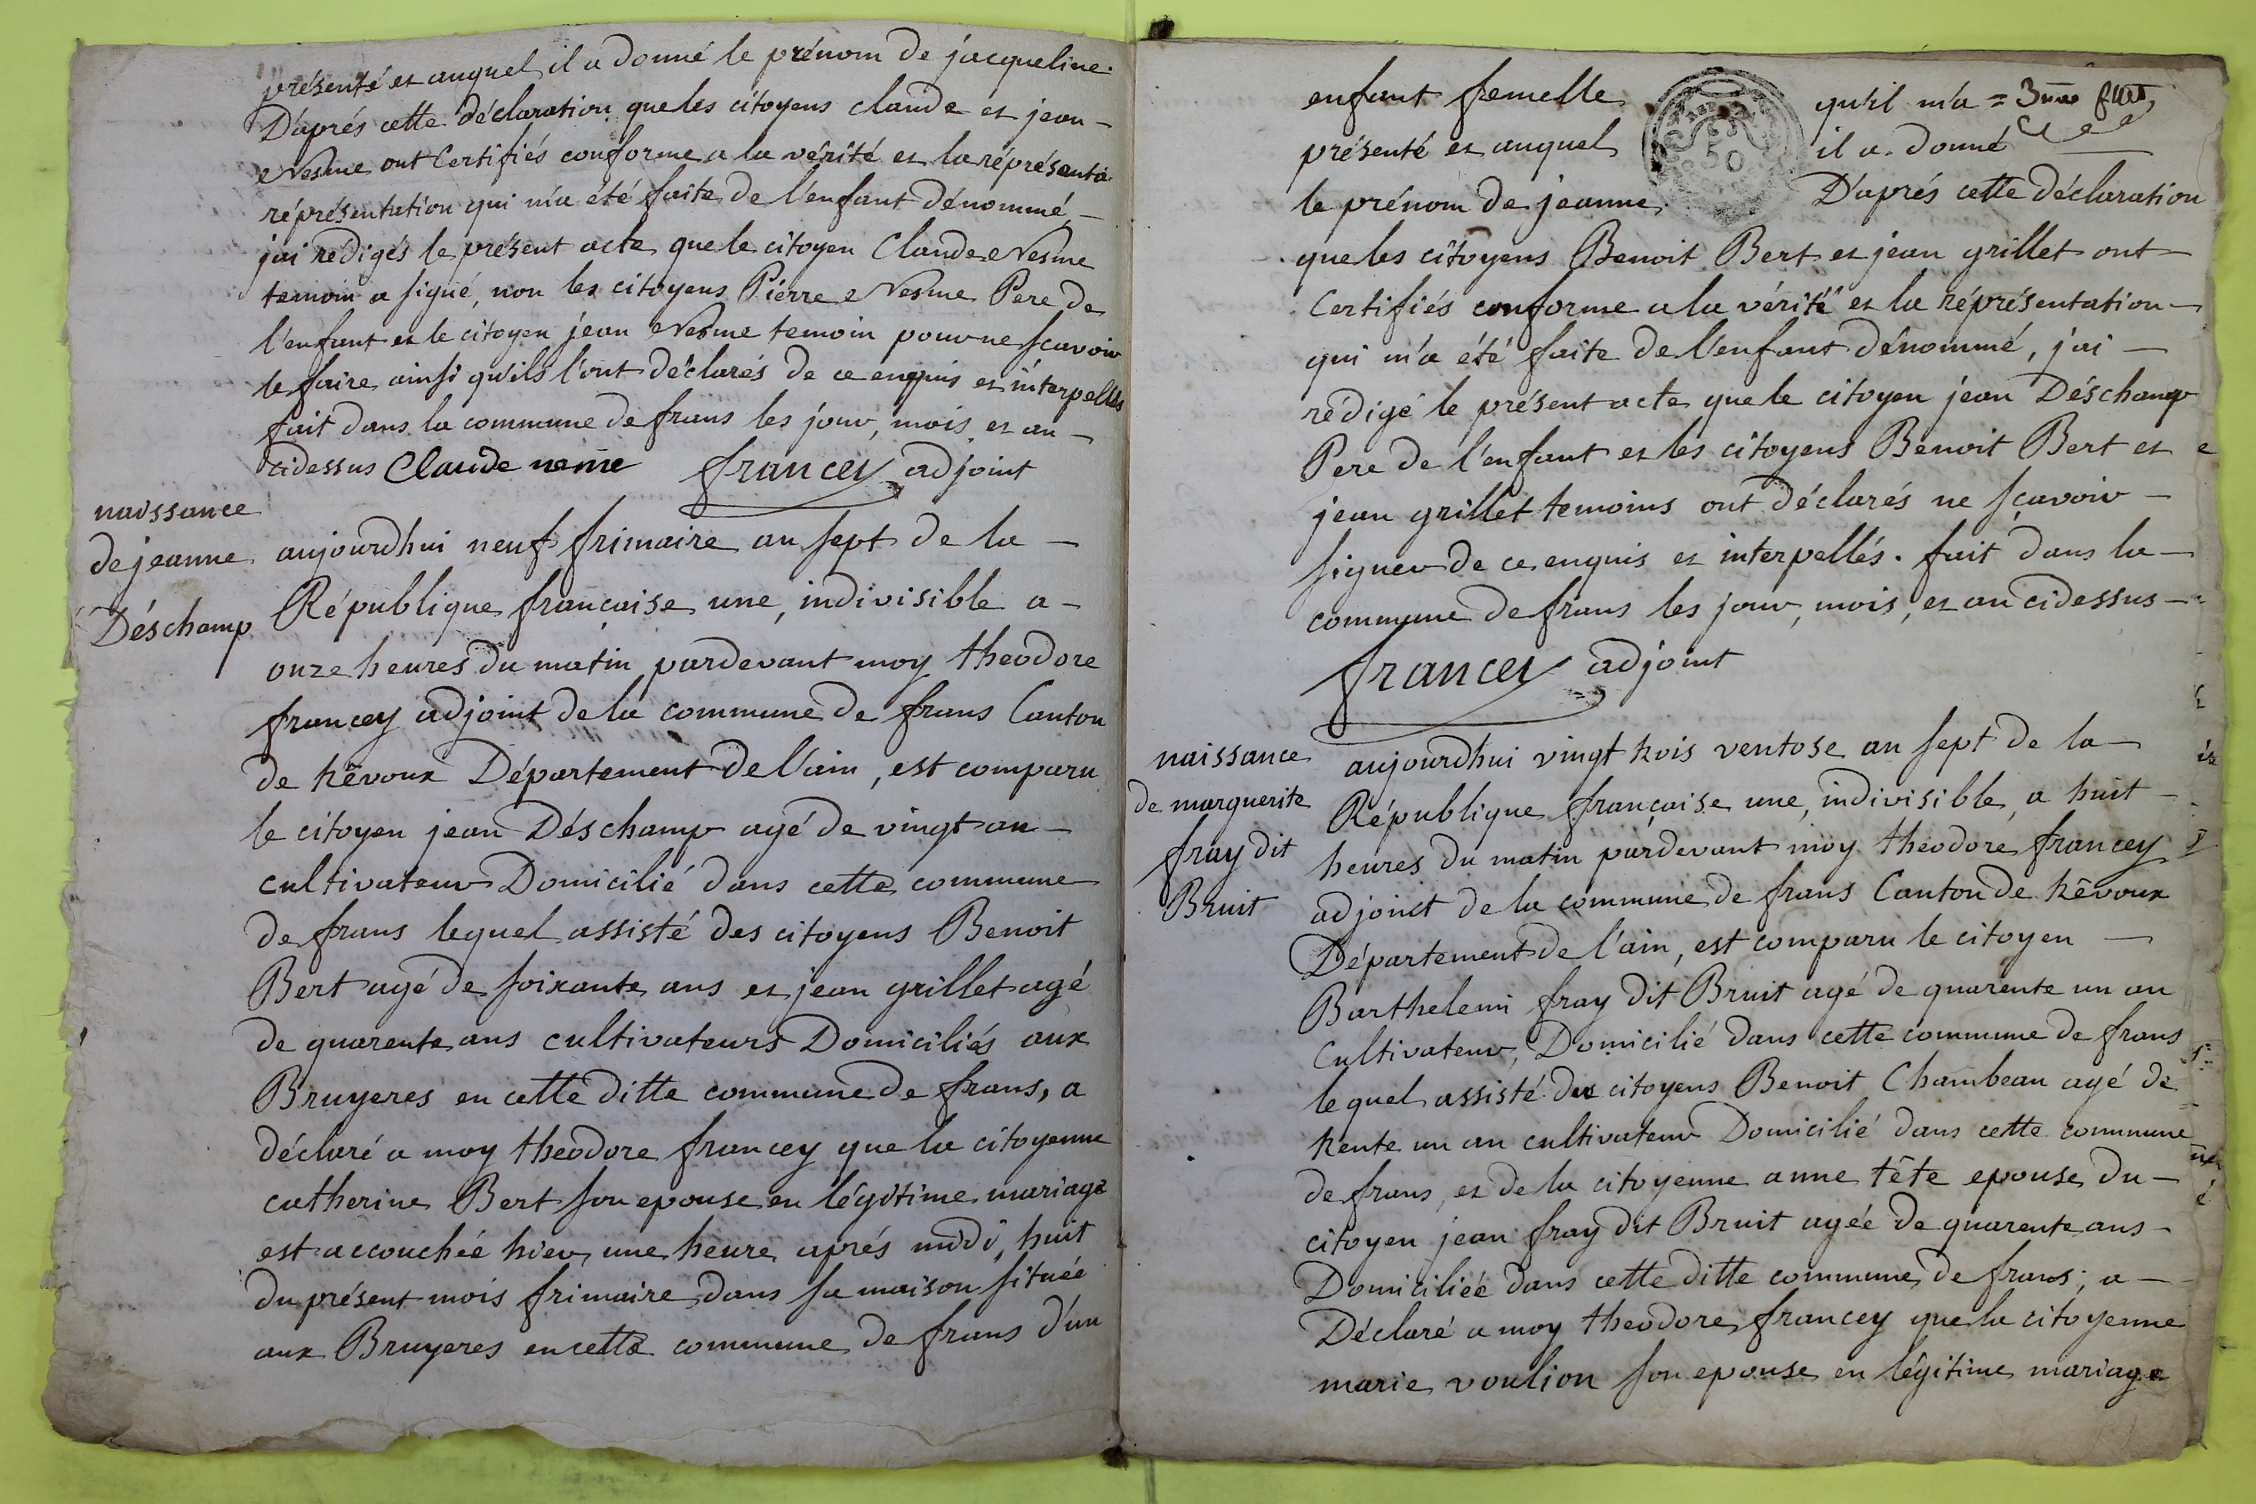 présenté et auquel il a donné le prénom de jacqueline.
D'aprés cette déclaration que les citoyens claude et jean –
Nesme ont Certifiés conforme a la vérité et la réprésenta
réprésentation qui m'a été faite de l'enfant dénommé –
jai rédigés le présent acte que le citoyen Claude Nesme
temoin a signé, non les citoyens Pierre Nesme Pere de
l'enfant et le citoyen jean Nesme temoin pour ne scavoir
le faire ainsi qu'ils l'ont déclarés de ce enquis et interpellés
fait dans la commune de frans les jour, mois et an –
cidessus Claude neme francey adjoint
naissance
de jeanne
Déschamp
aujourdhui neuf frimaire an sept de la –
République française une, indivisible a –
onze heures du matin pardevant moy theodore
francey adjoint de la commune de frans Canton
de trêvoux Département de l'ain, est comparu
le citoyen jean Déschamp agé de vingt an –
cultivateur Domicilié dans cette commune
de frans lequel assisté des citoyens Benoit
Bert agé de soixante ans et jean grillet agé
de quarente ans cultivateurs Domiciliés aux
Bruyeres en cette ditte commune de frans, a
déclaré a moy theodore francey que la citoyenne
catherine Bert son epouse en légitime mariage
est accouchée hier, une heure aprés midi, huit
du présent mois frimaire dans sa maison située
aux Bruyeres en cette commune de frans d'un
enfant femelle qu'il m'a = 3me
présenté et auquel il a donné
le prénom de jeanne. D'aprés cette déclaration
que les citoyens Benoit Bert et jean grillet ont –
Certifiés conforme a la vérité et la réprésentation –
qui m'a été faite de l'enfant dénommé, j'ai –
rédigé le présent acte que le citoyen jean Déschamp
Pere de l'enfant et les citoyens Benoit Bert et
jean grillet temoins ont déclarés ne scavoir –
signer de ce enquis et interpellés. fait dans la –
commune de frans les jour, mois, et an cidessus –
francey adjoint
naissance
de marguerite
fray dit
Bruit
aujourdhui vingt trois ventose an sept de la –
République française une, indivisible, a huit –
heures du matin pardevant moy theodore francey
adjoint de la commune de frans Canton de trêvoux
Département de l'ain, est comparu le citoyen –
Barthelemi fray dit Bruit agé de quarente un an
Cultivateur, Domicilié dans cette commune de frans
lequel assisté des citoyens Benoit Chambeau agé de
trente un an cultivateur Domicilié dans cette commune
de frans, et de la citoyenne anne tête epouse du –
citoyen jean fray dit Bruit agée de quarente ans –
Domiciliée dans cette ditte commune de frans, a –
Déclaré a moy theodore francey que la citoyenne
marie voulion son epouse en légitime mariage
50